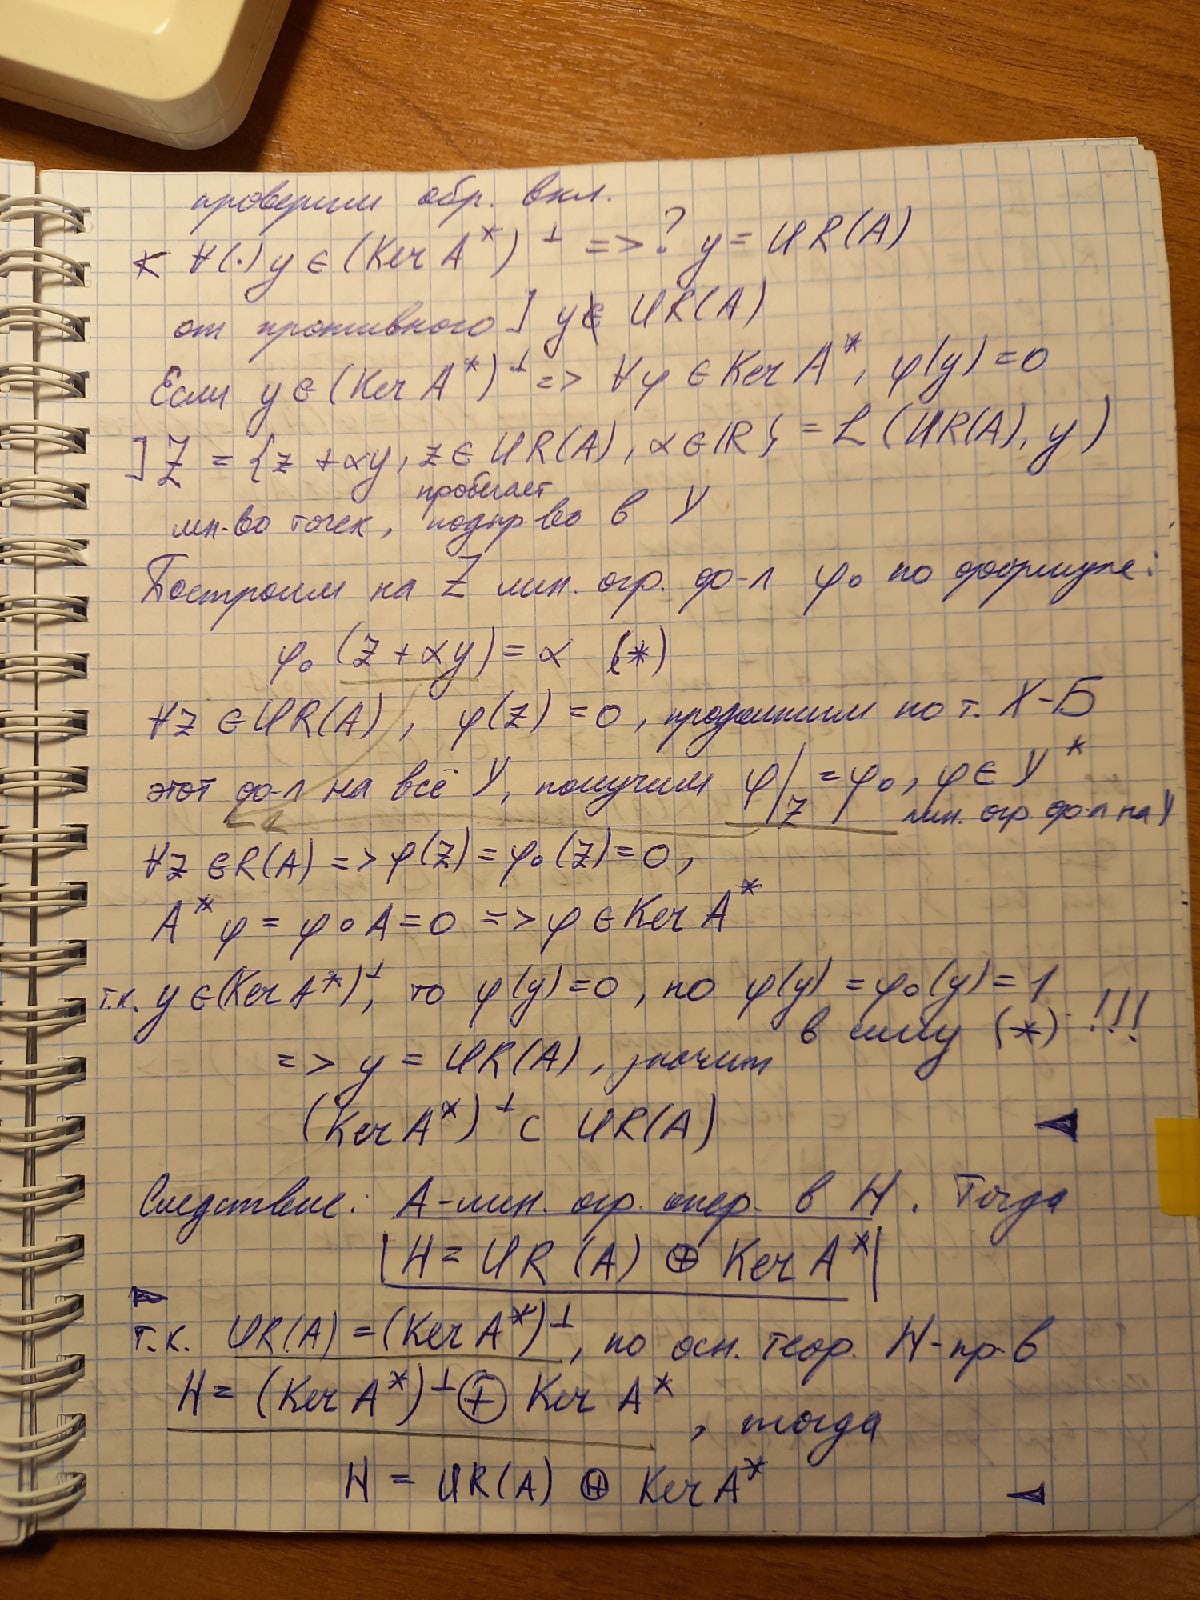 проверим обр. вкл.
< ∀(·) y ∈ (Ker A*)^⊥ =>? y = ИR(A)
от противного ] y ∉ ИR(A)
Если y ∈ (Ker A*)^⊥ => ∀φ ∈ Ker A*, φ(y) = 0
] Z = {z + αy, z ∈ ИR(A), α ∈ ℝ} = L (ИR(A), y)
пробегает
мн-во точек, подпр-во в Y
Построим на Z лин. огр. ф-л φ₀ по формуле:
φ₀ (z + αy) = α (*)
∀z ∈ ИR(A), φ(z) = 0, продолжим по т. Х-Б
этот ф-л на всё Y, получим φ|_Z = φ₀, φ ∈ Y*
лин. огр ф-л на Y
∀z ∈ R(A) => φ(z) = φ₀(z) = 0,
A*φ = φ∘A = 0 => φ ∈ Ker A*
т.к. y ∈ (Ker A*)^⊥, то φ(y) = 0, но φ(y) = φ₀(y) = 1
в силу (*) !!!
=> y = ИR(A), значит
(Ker A*)^⊥ ⊂ ИR(A) ◄
Следствие: A-лин. огр. опер. в H. Тогда
|H = ИR (A) ⊕ Ker A*|
►
т.к. ИR(A) = (Ker A*)^⊥, по осн. теор. H-пр-в
H = (Ker A*)^⊥ ⊕ Ker A*
, тогда
H = ИR(A) ⊕ Ker A* ◄